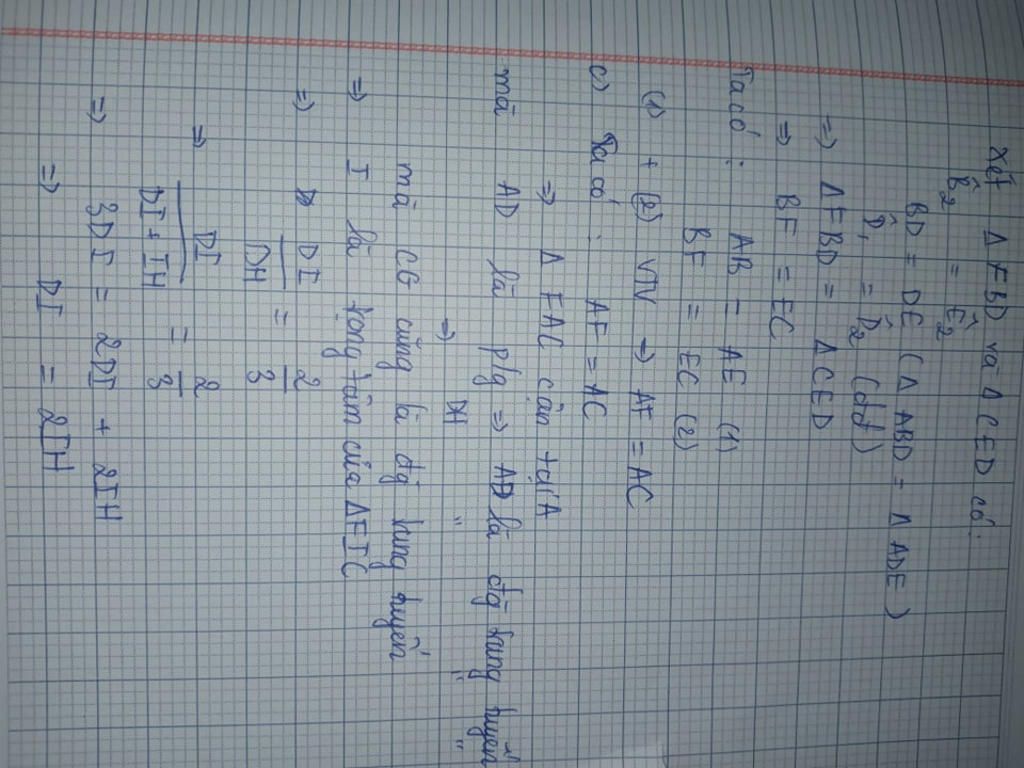 Xét Δ FBD và Δ CED có:
B̂₂ = Ê₂
BD = DE (Δ ABD = Δ ADE)
D̂₁ = D̂₂ (đđ)
⇒ Δ FBD = Δ CED
⇒ BF = EC
Ta có: AB = AE (1)
BF = EC (2)
(1) + (2) VTV → AF = AC
c) Ta có: AF = AC
⇒ Δ FAC cân tại A
mà AD là p/g ⇒ AD là đg trung tuyến
⇒ DH " " "
mà CG cũng là đg trung tuyến
⇒ I là trọng tâm của Δ FIC
⇒ DI/DH = 2/3
⇒ DI/DI + IH = 2/3
⇒ 3DI = 2DI + 2IH
⇒ DI = 2IH